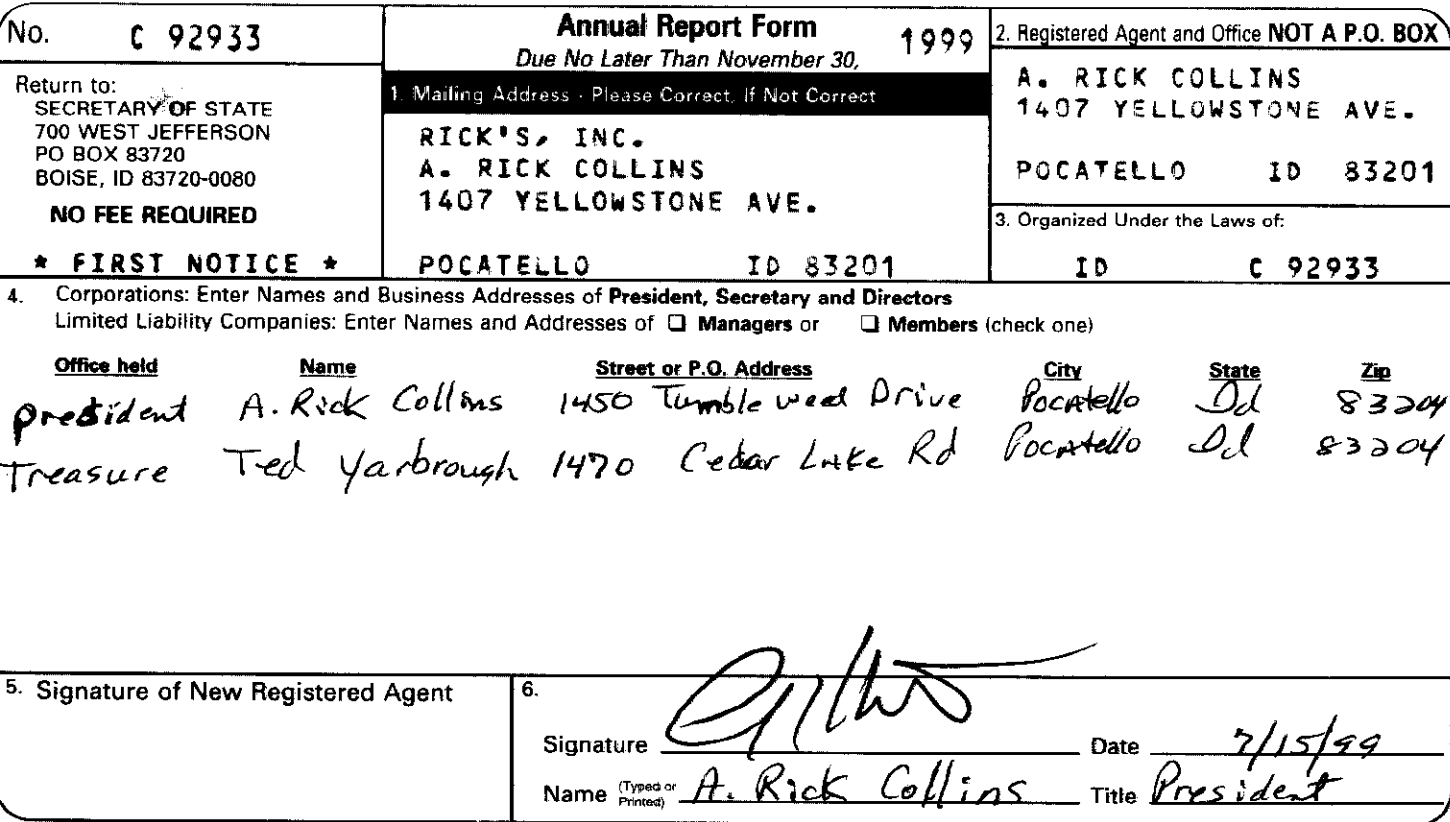 No. C 92933
Return to:
SECRETARY OF STATE
700 WEST JEFFERSON
PO BOX 83720
BOISE, ID 83720-0080
NO FEE REQUIRED
* FIRST NOTICE *
Annual Report Form 1999
Due No Later Than November 30,
1. Mailing Address - Please Correct, If Not Correct
RICK'S, INC.
A. RICK COLLINS
1407 YELLOWSTONE AVE.
POCATELLO ID 83201
2. Registered Agent and Office NOT A P.O. BOX
A. RICK COLLINS
1407 YELLOWSTONE AVE.
POCATELLO ID 83201
3. Organized Under the Laws of:
ID C 92933
4. Corporations: Enter Names and Business Addresses of President, Secretary and Directors
Limited Liability Companies: Enter Names and Addresses of ❑ Managers or ❑ Members (check one)
Office held Name Street or P.O. Address City State Zip
president A. Rick Collins 1450 Tumble weed Drive Pocatello Id 83204
Treasure Ted Yarbrough 1470 Cedar Lake Rd Pocatello Id 83204
5. Signature of New Registered Agent
6.
Signature Date 7/15/99
Name (Typed or Printed) A. Rick Collins Title President